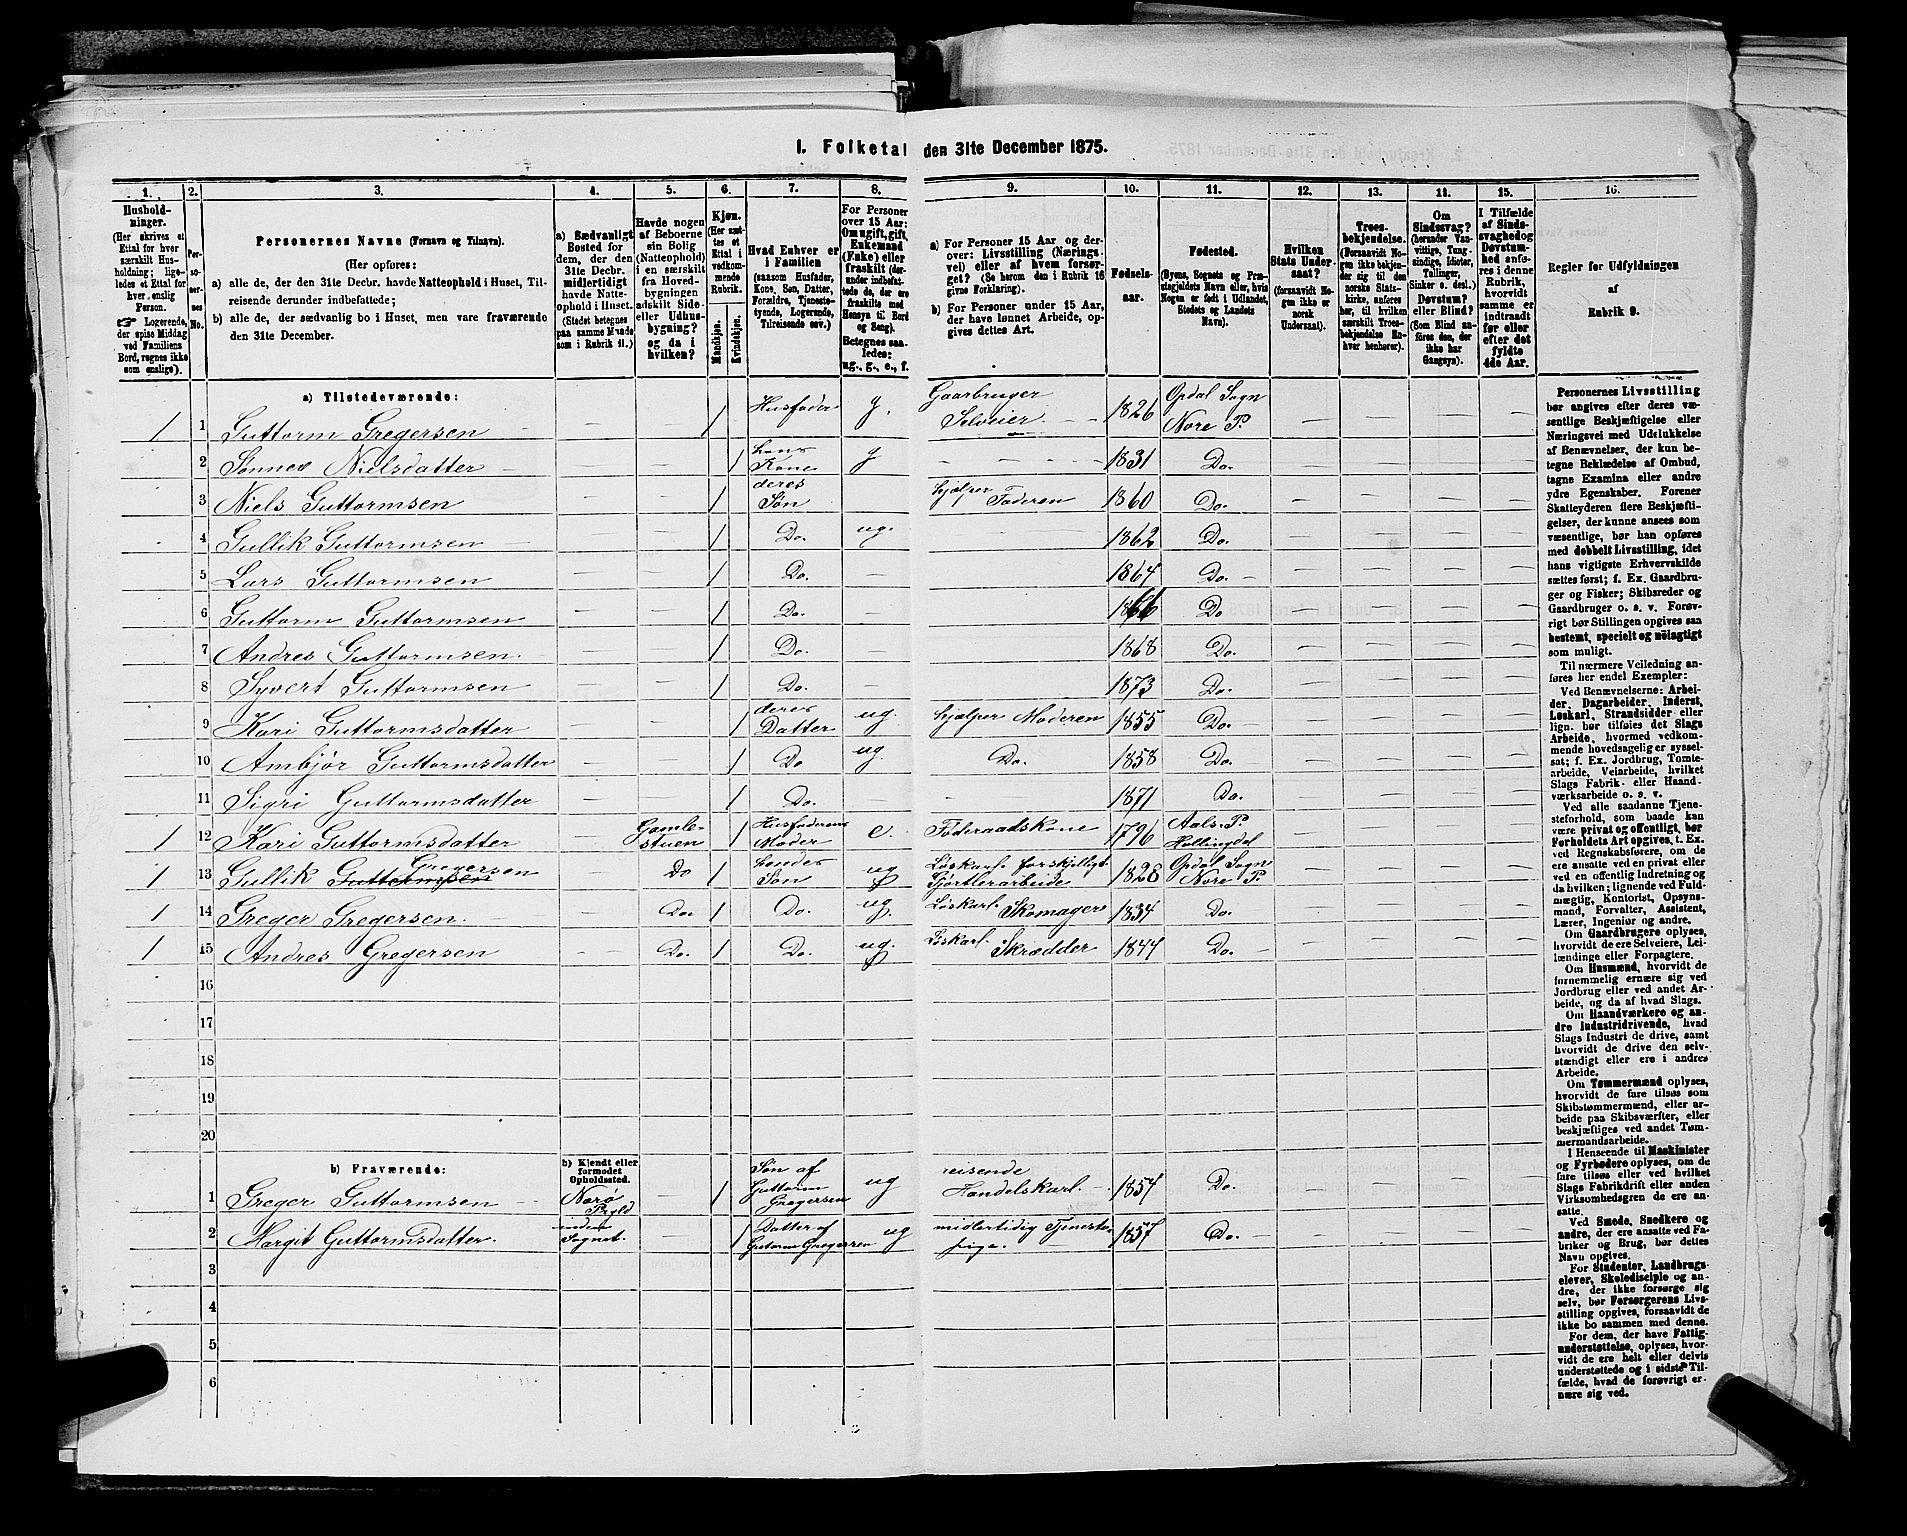 1. Folketal den 31te December 1875.
1. 2. 3. 4. 5. 6. 7. 8. 9. 10. 11. 12. 13. 14. 15. 16.
Hushold-
ninger.
(Her skrives et
Ettal for hver
særskilt Hus-
holdning; lige-
ledes et Ettal
for hver
enslig
Person.
Logerende,
der spise Middag
ved Familiens
Bord, regnes ikke
som enslige).
Per-
so-
ner-
nes
No.
Personernes Navne (Fornavn og Tilnavn).
(Her opføres:
a) alle de, der den 31te Decbr. havde Natteophold i Huset, Til-
reisende derunder indbefattede;
b) alle de, der sædvanlig bo i Huset, men vare fraværende
den 31te December.
a) Sædvanligt
Bosted for
dem, der den
31te Decbr.
midlertidigt
havde Natte-
ophold i Huset.
(Stedet betegnes
paa samme Maade
som i Rubrik 11.)
Havde nogen
af Beboerne
sin Bolig
(Natteophold)
i en særskilt
fra Hoved-
bygningen
adskilt Side-
eller Udhus-
bygning?
og da i
hvilken?
Kjøn.
(Her sæt-
tes et
Ettal i
vedkom-
mende
Rubrik.
Mandkjøn.
Kvindekjøn.
Hvad Enhver er
i Familien
(saasom Husfader,
Kone, Søn, Datter,
Forældre, Tjeneste-
tyende, Logerende,
Tilreisende osv.)
For Personer
over 15 Aar:
Om ugift, gift,
Enkemand
(Enke) eller
fraskilt (der-
under indbefat-
tede de, der ere
fraskilte med
Hensyn til Bord
og Seng).
Betegnes saa-
ledes:
ug., g., e., f.
a) For Personer 15 Aar og der-
over: Livsstilling (Nærings-
vei) eller af hvem forsør-
get? (Se herom den i Rubrik 16
givne Forklaring).
b) For Personer under 15 Aar,
der have lønnet Arbeide, op-
gives dettes Art.
Fødsels-
aar.
Fødested.
(Byens, Sognets og Præ-
stegjeldets Navn eller, hvis
Nogen er født i Udlandet,
Stedets og Landets
Navn).
Hvilken
Stats Under-
saat?
(forsaavidt No-
gen ikke er
norsk
Undersaat).
Troes-
bekjendelse.
(Forsaavidt No-
gen ikke bekjen-
der sig til den
norske Stats-
kirke, anføres
her, til hvilken
særskilt Troes-
bekjendelse En-
hver henhører).
Om
Sindssvag?
(herunder Van-
vittige, Tung-
sindige, Idioter,
Tullinger,
Sinker o. desl.)
Døvstum?
eller Blind?
(Som Blind an-
føres den, der
ikke har
Gangsyn).
I Tilfælde
af Sinds-
svaghed og
Døvstum-
hed anfø-
res i denne
Rubrik,
hvorvidt
samme er
indtraadt
før eller
efter det
fyldte
4de Aar.
Regler for Udfyldningen
af
Rubrik 9.
a) Tilstedeværende:
1 1 Guttorm Gregersen 1 Husfader g. Gaarbruger Selveier. 1826 Opdal Sogn Nore P.
2 Sønnes Nielsdatter 1 hans Kone g 1831 Do.
3 Niels Guttormsen 1 deres Søn hjelper Faderen 1860 Do.
4 Gullik Guttormsen 1 Do. ug. 1862 Do.
5 Lars Guttormsen 1 Do. 1864 Do.
6 Guttorm Guttormsen 1 Do. 1866 Do
7 Andres Guttormsen. 1 Do. 1868 Do.
8 Syvert Guttormsen 1 Do. 1873 Do.
9 Kari Guttormsdatter 1 deres Datter ug. hjelper Moderen 1855 Do.
10 Ambjør Guttormsdatter 1 Do ug. Do. 1858 Do.
11 Sigri Guttormsdatter 1 Do. 1871 Do.
1 12 Kari Guttormsdatter Gamle-stuen 1 Husfaderens Moder e. Føderaadskone 1796 Aals P. Hallingdal
1 13 Gullik Guttormsen Gregersen Do 1 hendes Søn ug Løskarl forskjelligt Gjørtlerarbeide 1828 Opdal Sogn Nore P.
1 14 Greger Gregersen. Do. 1 Do. ug. Løskarl. Skomager 1834 Do.
1 15 Andres Gregersen Do. 1 Do. ug. Løskarl. Skrædder 1844 Do.
16
17
18
19
20
b) Fraværende:
b) Kjendt eller
formodet
Opholdssted.
1 Greger Guttormsen Nore Prgld 1 Søn af Guttorm Gregersen ug reisende Handelskarl. 1854 Do.
2 Margit Guttormsdatter. inden Sognet. 1 Datter af Guttorm Gregersen ug midlertidig Tjeneste-pige. 1857 Do.
3
4
5
6
Personernes Livsstilling
bør angives efter deres væ-
sentlige Beskjæftigelse eller
Næringsvei med Udelukkelse
af Benævnelser, der kun be-
tegne Beklædelse af Ombud,
tagne Examina eller andre
ydre Egenskaber. Forener
Skatteyderen flere Beskjæfti-
gelser, der kunne ansees som
væsentlige, bør han opføres
med dobbelt Livsstilling, idet
hans vigtigste Erhvervskilde
sættes først; f. Ex. Gaardbru-
ger og Fisker; Skibsreder og
Gaardbruger o. s. v. Forøv-
rigt bør Stillingen opgives saa
bestemt, specielt og nöiagtigt
som muligt.
Til nærmere Veiledning an-
føres her endel Exempler:
Ved Benævnelserne: Arbei-
der, Dagarbeider, Inderst,
Løskarl, Strandsidder eller
lign. bør tilføies det Slags
Arbeide, hvormed vedkom-
mende hovedsagelig er syssel-
sat; f. Ex. Jordbrug, Tomte-
arbeide, Veiarbeide, hvilket
Slags Fabrik- eller Haand-
værksarbeide o. s. v.
Ved alle saadanne Tjene-
steforhold, som baade kan
være privat og offentligt, bør
Forholdets Art opgives, t. Ex.
ved Regnskabsførere, om de
ere ansatte ved en privat eller
ved en offentlig Indretning og
da hvilken; lignende ved Fuld-
mægtig, Kontorist, Opsyns-
mand, Forvalter, Assistent,
Lærer, Ingeniør og andre.
Om Gaardbrugere oplyses,
hvorvidt de ere Selveiere, Lei-
lændinge eller Forpagtere.
Om Husmænd, hvorvidt de
fornemmelig ernære sig ved
Jordbrug eller ved andet Ar-
beide, og da af hvad Slags.
Om Haandværkere og an-
dre Industridrivende, hvad
Slags Industri de drive, samt
hvorvidt de drive den selv-
stændigt eller ere i andres
Arbeide.
Om Tømmermænd oplyses,
hvorvidt de fare tilsøs som
Skibstømmermænd, eller ar-
beide paa Skibsværfter, eller
beskjæftiges ved andet Tøm-
mermandsarbeide.
I Henseende til Maskinister
og Fyrbødere oplyses, om de
fare tilsøs eller ved hvilket
Slags Fabrikdrift eller anden
Virksomhedsgren de ere an-
satte.
Ved Smede, Snedkere og
andre, der ere ansatte ved Fa-
briker og Brug, bør dettes
Navn opgives.
For Studenter, Landbrugs-
elever, Skoledisciple og an-
dre, der ikke forsørge sig
selv, bør Forsørgerens Livs-
stilling opgives, forsaavidt de
ikke bo sammen med denne.
For dem, der have Fattig-
understøttelse, oplyses, hvor-
vidt de ere helt eller delvis
understøttede og i sidste Til-
fælde, hvad de forøvrigt er-
nære sig ved.